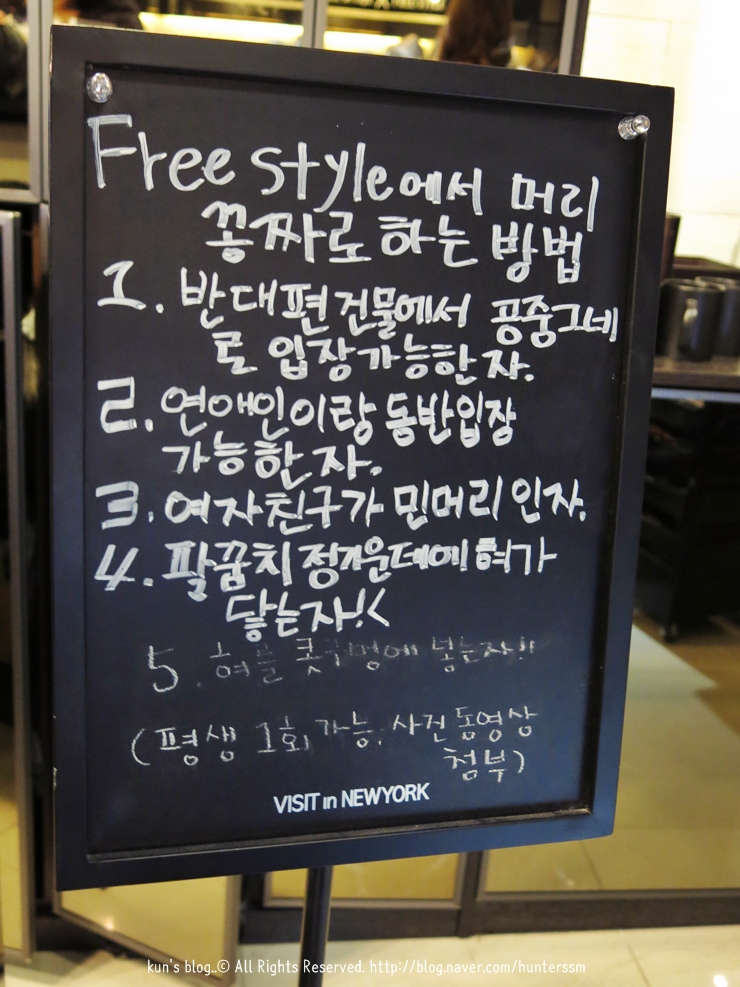 Free style에서 머리
꽁짜로 하는 방법
1. 반대편 건물에서 공중그네
로 입장가능한 자.
2. 연애인이랑 동반입장
가능한 자.
3. 여자친구가 민머리 인자.
4. 팔꿈치 정가운데에 혀가
닿는자!<
5. 혀를 콧구멍에 넣는자!!
(평생 1회 가능. 사진 동영상
첨부)
VISIT in NEWYORK
kun's blog..© All Rights Reserved. http://blog.naver.com/hunterssm